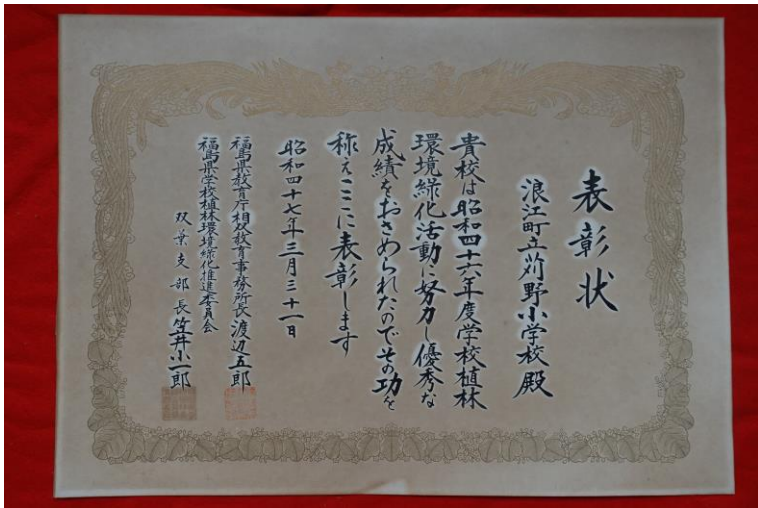 表彰状
浪江町立苅野小学校殿
貴校は昭和四十六年度学校植林
環境緑化活動に努力し優秀な
成績をおさめられたのでその功を
称えここに表彰します
昭和四十七年三月三十一日
福島県教育庁相双教育事務所長渡辺五郎
福島県学校植林環境緑化推進委員会
双葉支部長笠井小一郎